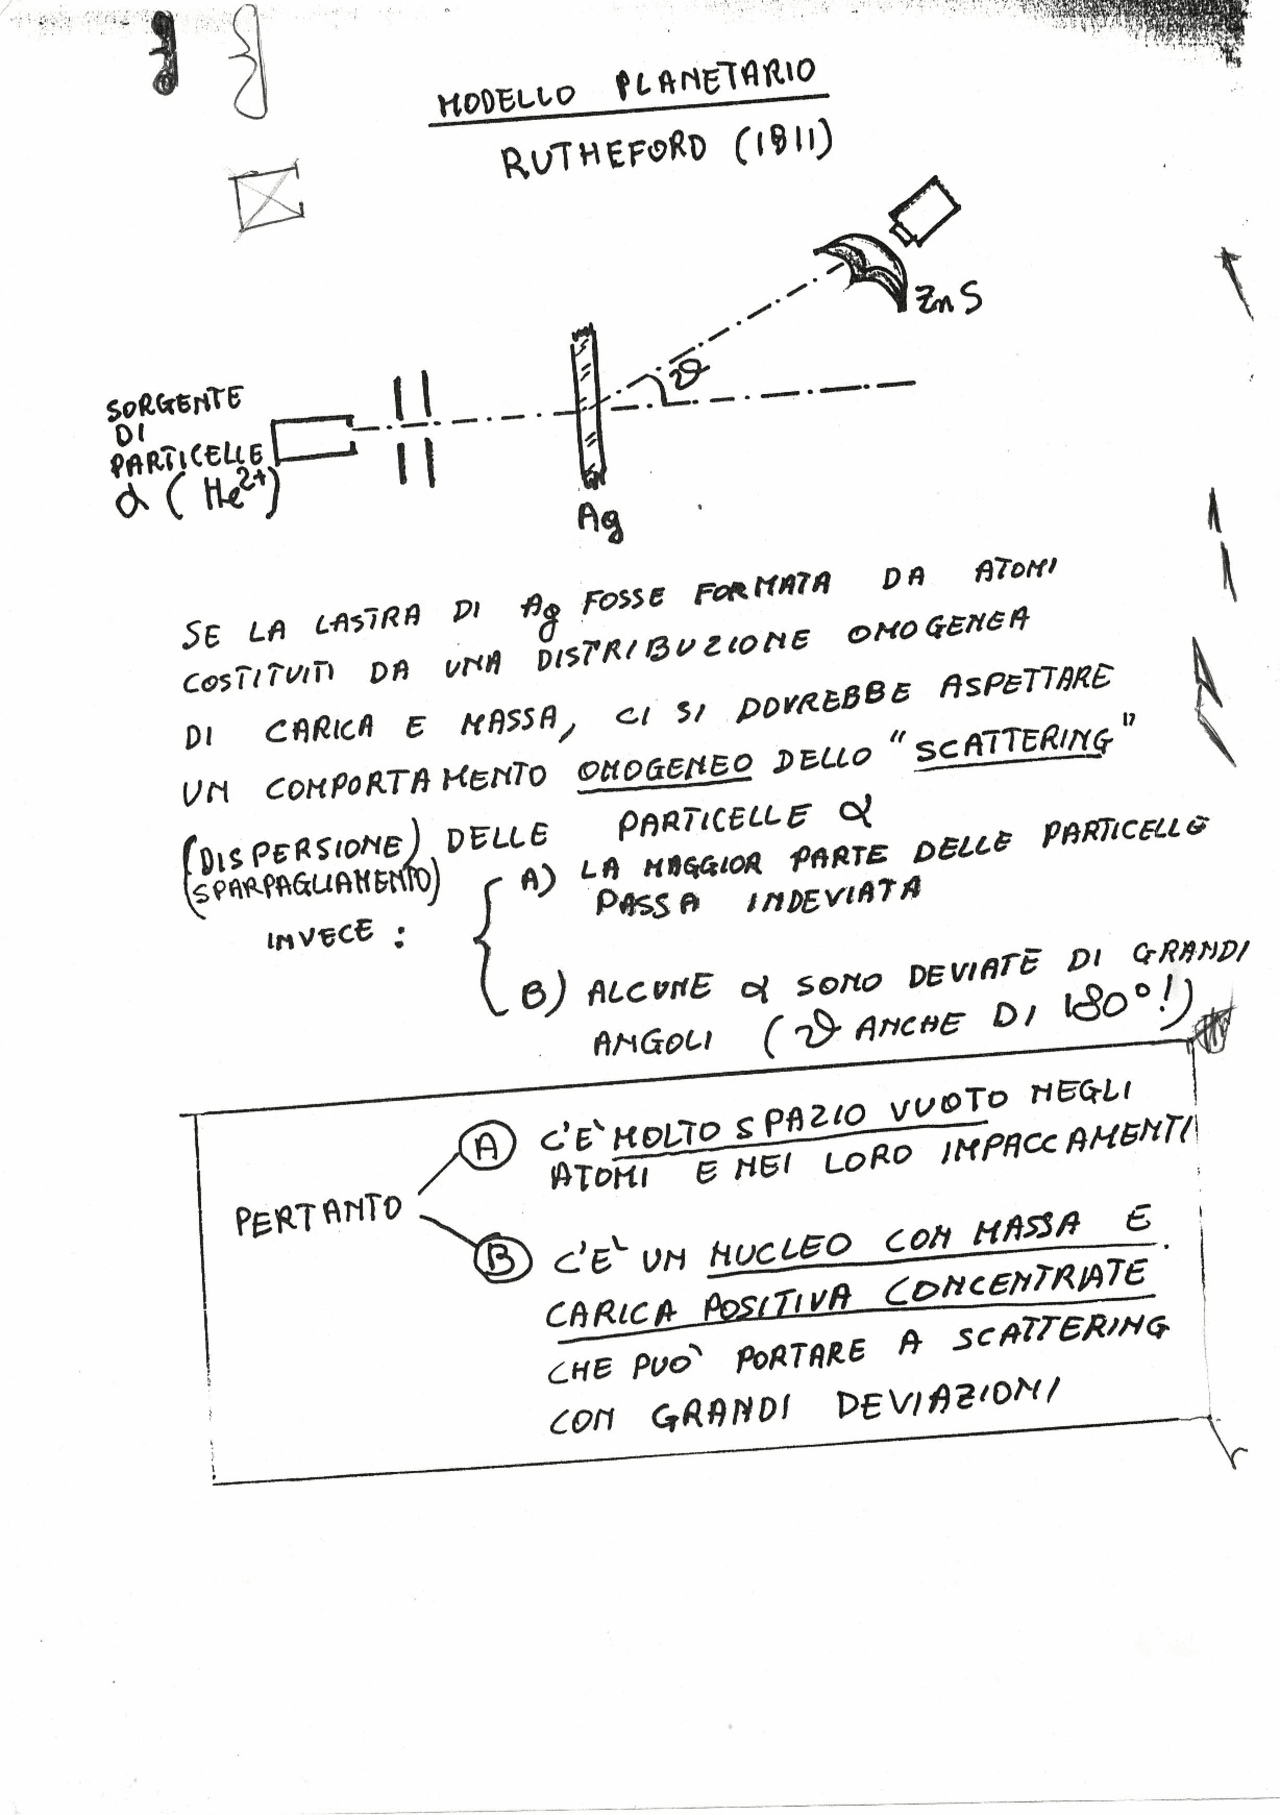 MODELLO PLANETARIO
RUTHEFORD (1911)
ZnS
ϑ
SORGENTE
DI
PARTICELLE
α (He²⁺)
Ag
SE LA LASTRA DI Ag FOSSE FORMATA DA ATOMI
COSTITUITI DA UNA DISTRIBUZIONE OMOGENEA
DI CARICA E MASSA, CI SI DOVREBBE ASPETTARE
UN COMPORTAMENTO OMOGENEO DELLO "SCATTERING"
(DISPERSIONE) DELLE PARTICELLE α
(SPARPAGLIAMENTO)
INVECE :
A) LA MAGGIOR PARTE DELLE PARTICELLE
PASSA INDEVIATA
B) ALCUNE α SONO DEVIATE DI GRANDI
ANGOLI (ϑ ANCHE DI 180°!)
PERTANTO
A C'E' MOLTO SPAZIO VUOTO NEGLI
ATOMI E NEI LORO IMPACCAMENTI
B C'E' UN NUCLEO CON MASSA E
CARICA POSITIVA CONCENTRATE
CHE PUO' PORTARE A SCATTERING
CON GRANDI DEVIAZIONI